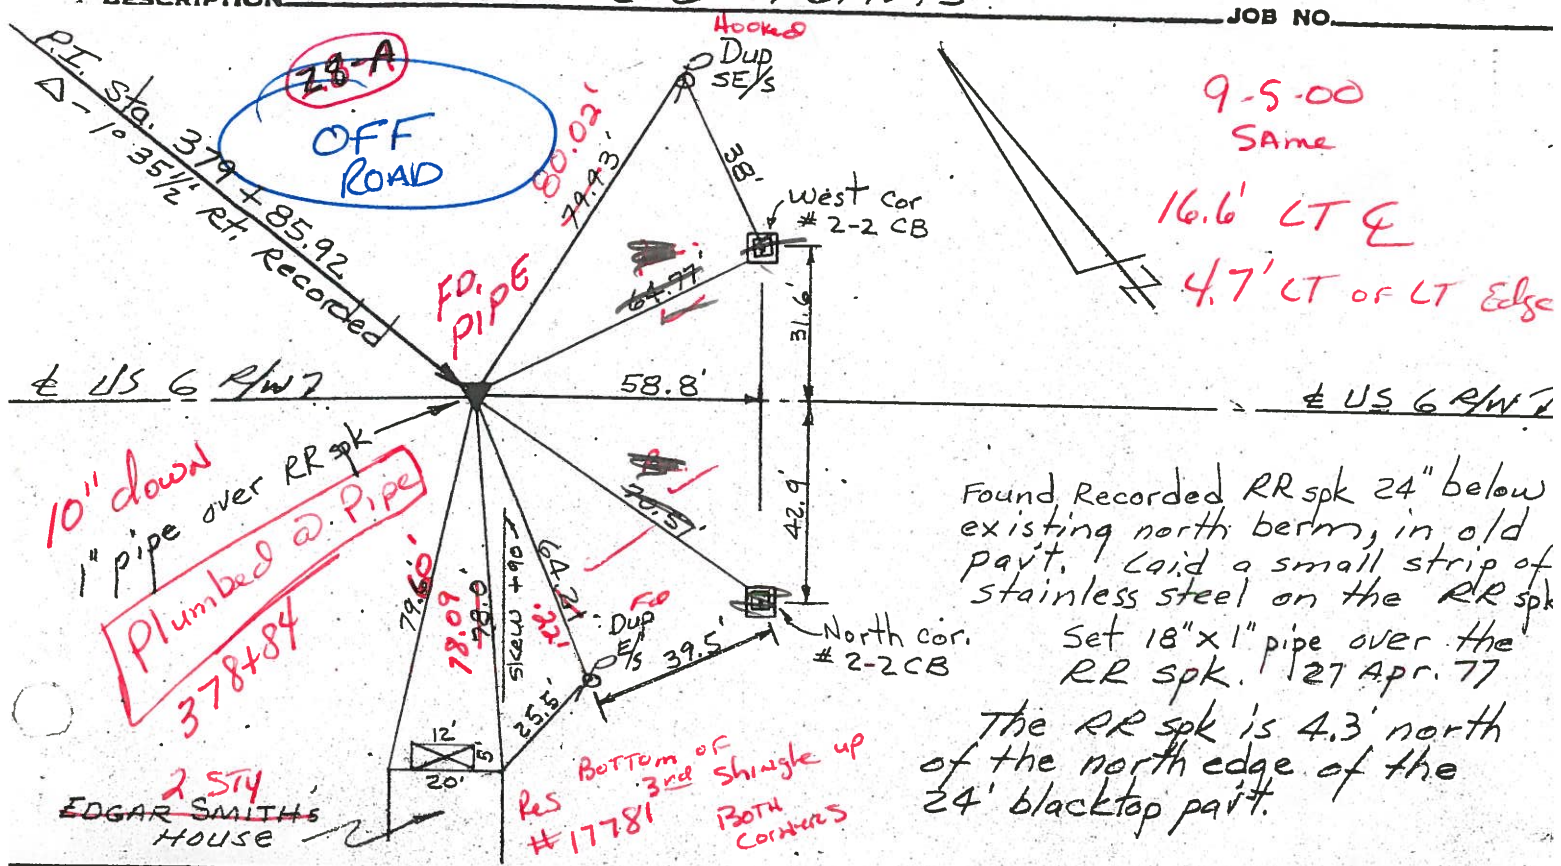 DESCRIPTION
JOB NO.
P.I. Sta. 379 + 85.92
Δ - 1° 35½' Rt. Recorded
28-A
OFF
ROAD
Hooked
Dup
SE/s
80.02'
79.93'
38'
West Cor
# 2-2 CB
9-5-00
SAme
16.6' LT ℄
4.7' LT OF LT Edge
FD.
PIPE
64.77'
31.6'
℄ US 6 R/W
58.8'
℄ US 6 R/W
10" down
1" pipe over RR spk
Plumbed @ Pipe
378+84
70.5'
42.9'
79.6'
.60'
78.09
78.0'
Skew +90
64.2'
.22'
Fd
Dup
E/s
39.5'
25.5'
North cor.
# 2-2 CB
12'
5'
20'
2 STY
EDGAR SMITH'S
HOUSE
BOTTOM OF
3rd Shingle up
BOTH
Corners
Res
# 17781
Found Recorded RR spk 24" below
existing north berm, in old
pav't. Laid a small strip of
stainless steel on the RR spk
Set 18" x 1" pipe over the
RR spk. 27 Apr. 77
The RR spk is 4.3' north
of the north edge of the
24' blacktop pav't.